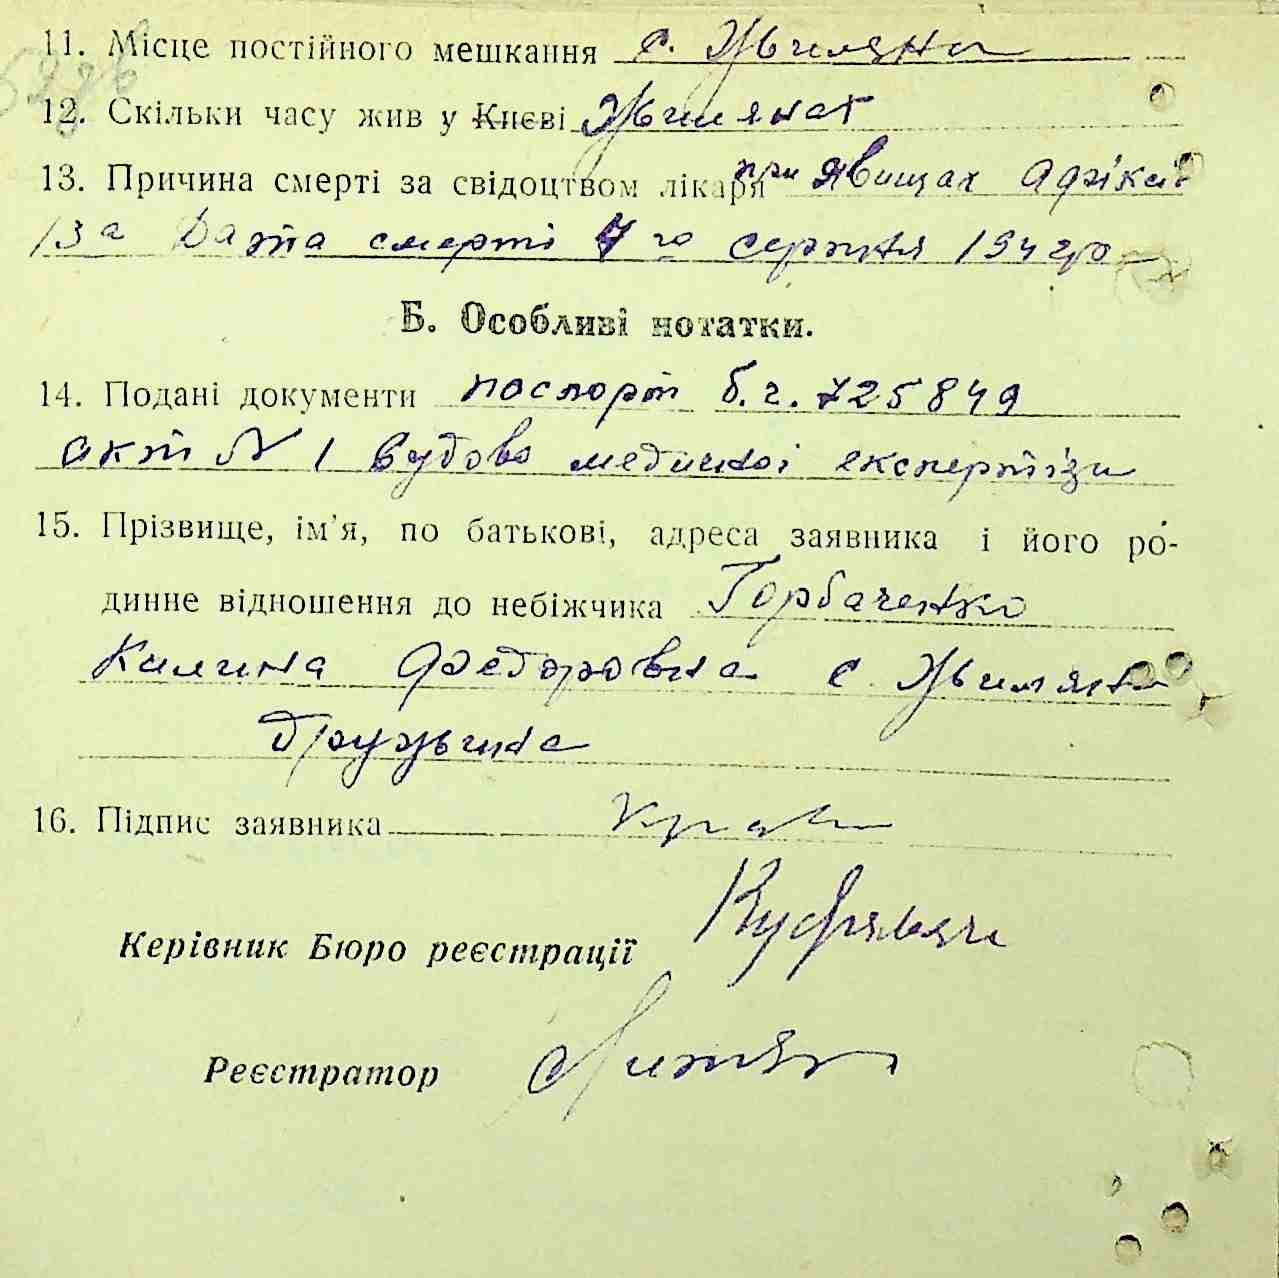 11. Місце постійного мешкання с. Жиляни
12. Скільки часу жив у Києві Жилянах
13. Причина смерті за свідоцтвом лікаря при явищах
13а Дата смерті 7 го серпня 194
Б. Особливі нотатки.
14. Подані документи паспорт б.ч. 725849
акт № 1 судово медичної експертізи
15. Прізвище, ім'я, по батькові, адреса заявника і його ро-
динне відношення до небіжчика Горбаченко
Килина Федоровна с Жиляни
дружина
16. Підпис заявника
Керівник Бюро реєстрації
Реєстратор